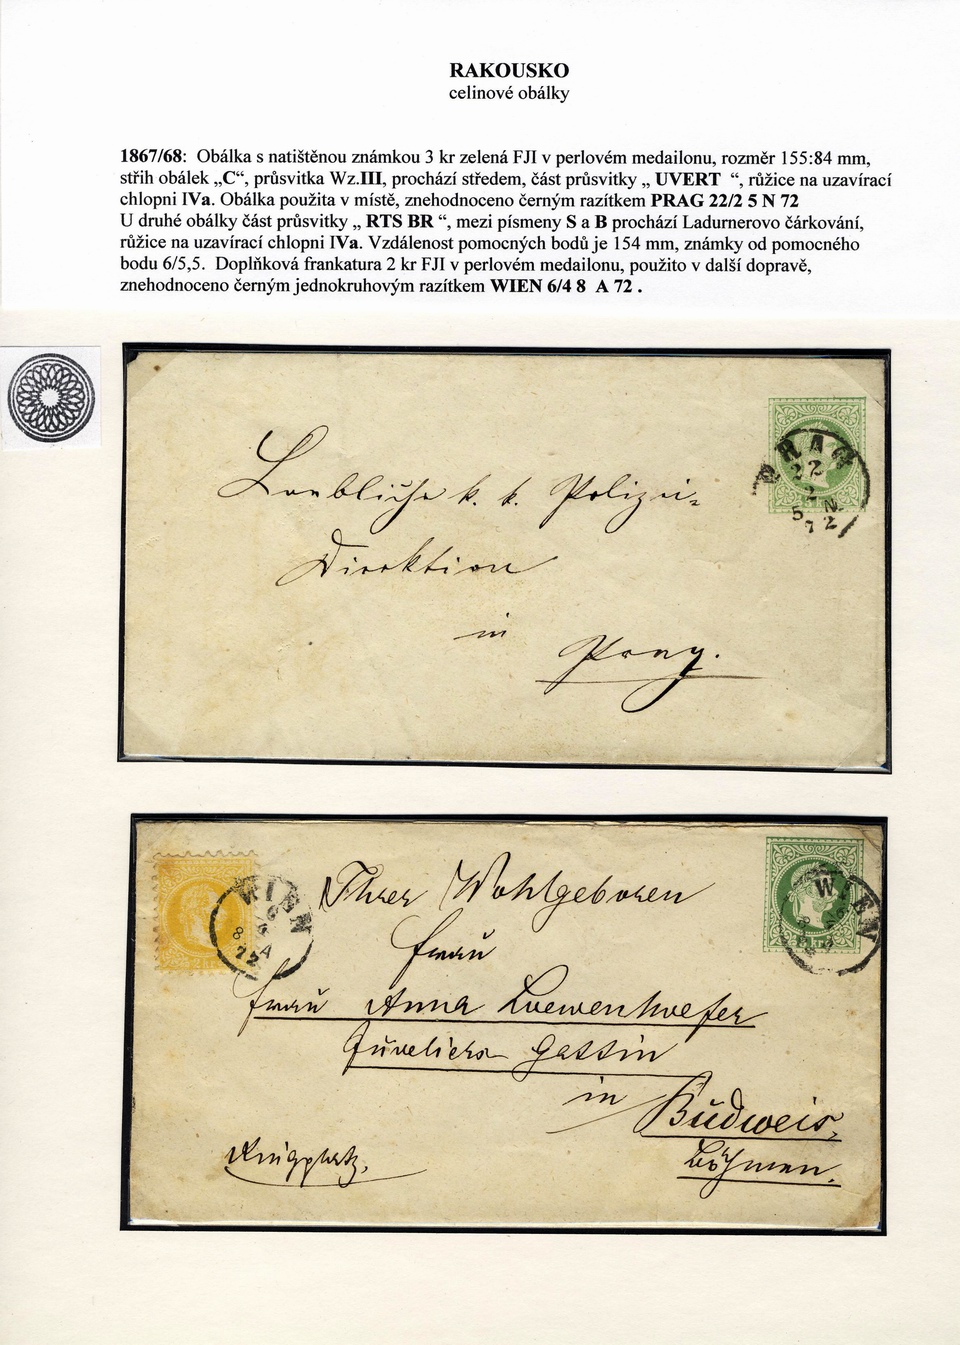 RAKOUSKO
celinové obálky
1867/68: Obálka s natištěnou známkou 3 kr zelená FJI v perlovém medailonu, rozměr 155:84 mm,
střih obálek „C“, průsvitka Wz.III, prochází středem, část průsvitky „ UVERT “, růžice na uzavírací
chlopni IVa. Obálka použita v místě, znehodnoceno černým razítkem PRAG 22/2 5 N 72
U druhé obálky část průsvitky „ RTS BR “, mezi písmeny S a B prochází Ladurnerovo čárkování,
růžice na uzavírací chlopni IVa. Vzdálenost pomocných bodů je 154 mm, známky od pomocného
bodu 6/5,5. Doplňková frankatura 2 kr FJI v perlovém medailonu, použito v další dopravě,
znehodnoceno černým jednokruhovým razítkem WIEN 6/4 8 A 72 .
PRAG
22
2
5 N
72
Loebliche k. k. Polizei-
Direktion
in
Prag.
WIEN
6
4
8 A
72
WIEN
Ihrer Wohlgeboren
Frau
Frau Anna Loewenhoefer
Juweliers Gattin
in
Budweis,
Böhmen.
Ringplatz.